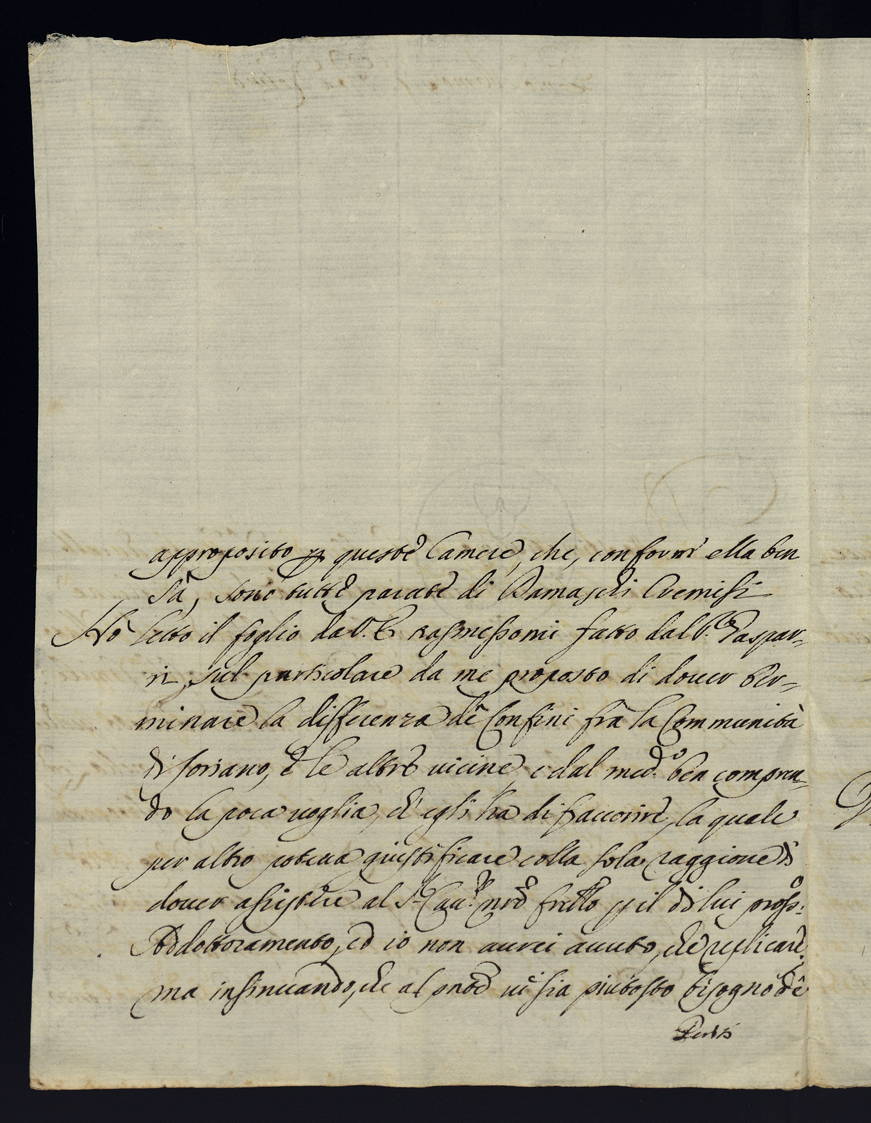 approposito per queste Camere, che, conform' ella ben
sà, sono tutte parate di Damaschi Cremisi
Hò letto il foglio da V. E. trasmessomi fatto dal S.r Gaspar-
ri, sul particolare da me proposto di dover ter-
minare la differenza de Confini frà la Communità
di Soriano, e le altre vicine, e dal med.o ben compren-
do la poca voglia, ch' egli ha di favorire, la quale
per altro poteva giustificare colla sola raggione di
dover assistere al S.r Cav.re nrõ frẽllo p il di lui pross.o
Addottoramento, ed io non aurei auuto, che replicare,
ma insinuando, che al pnte vi sia piutosto bisogno de
Periti